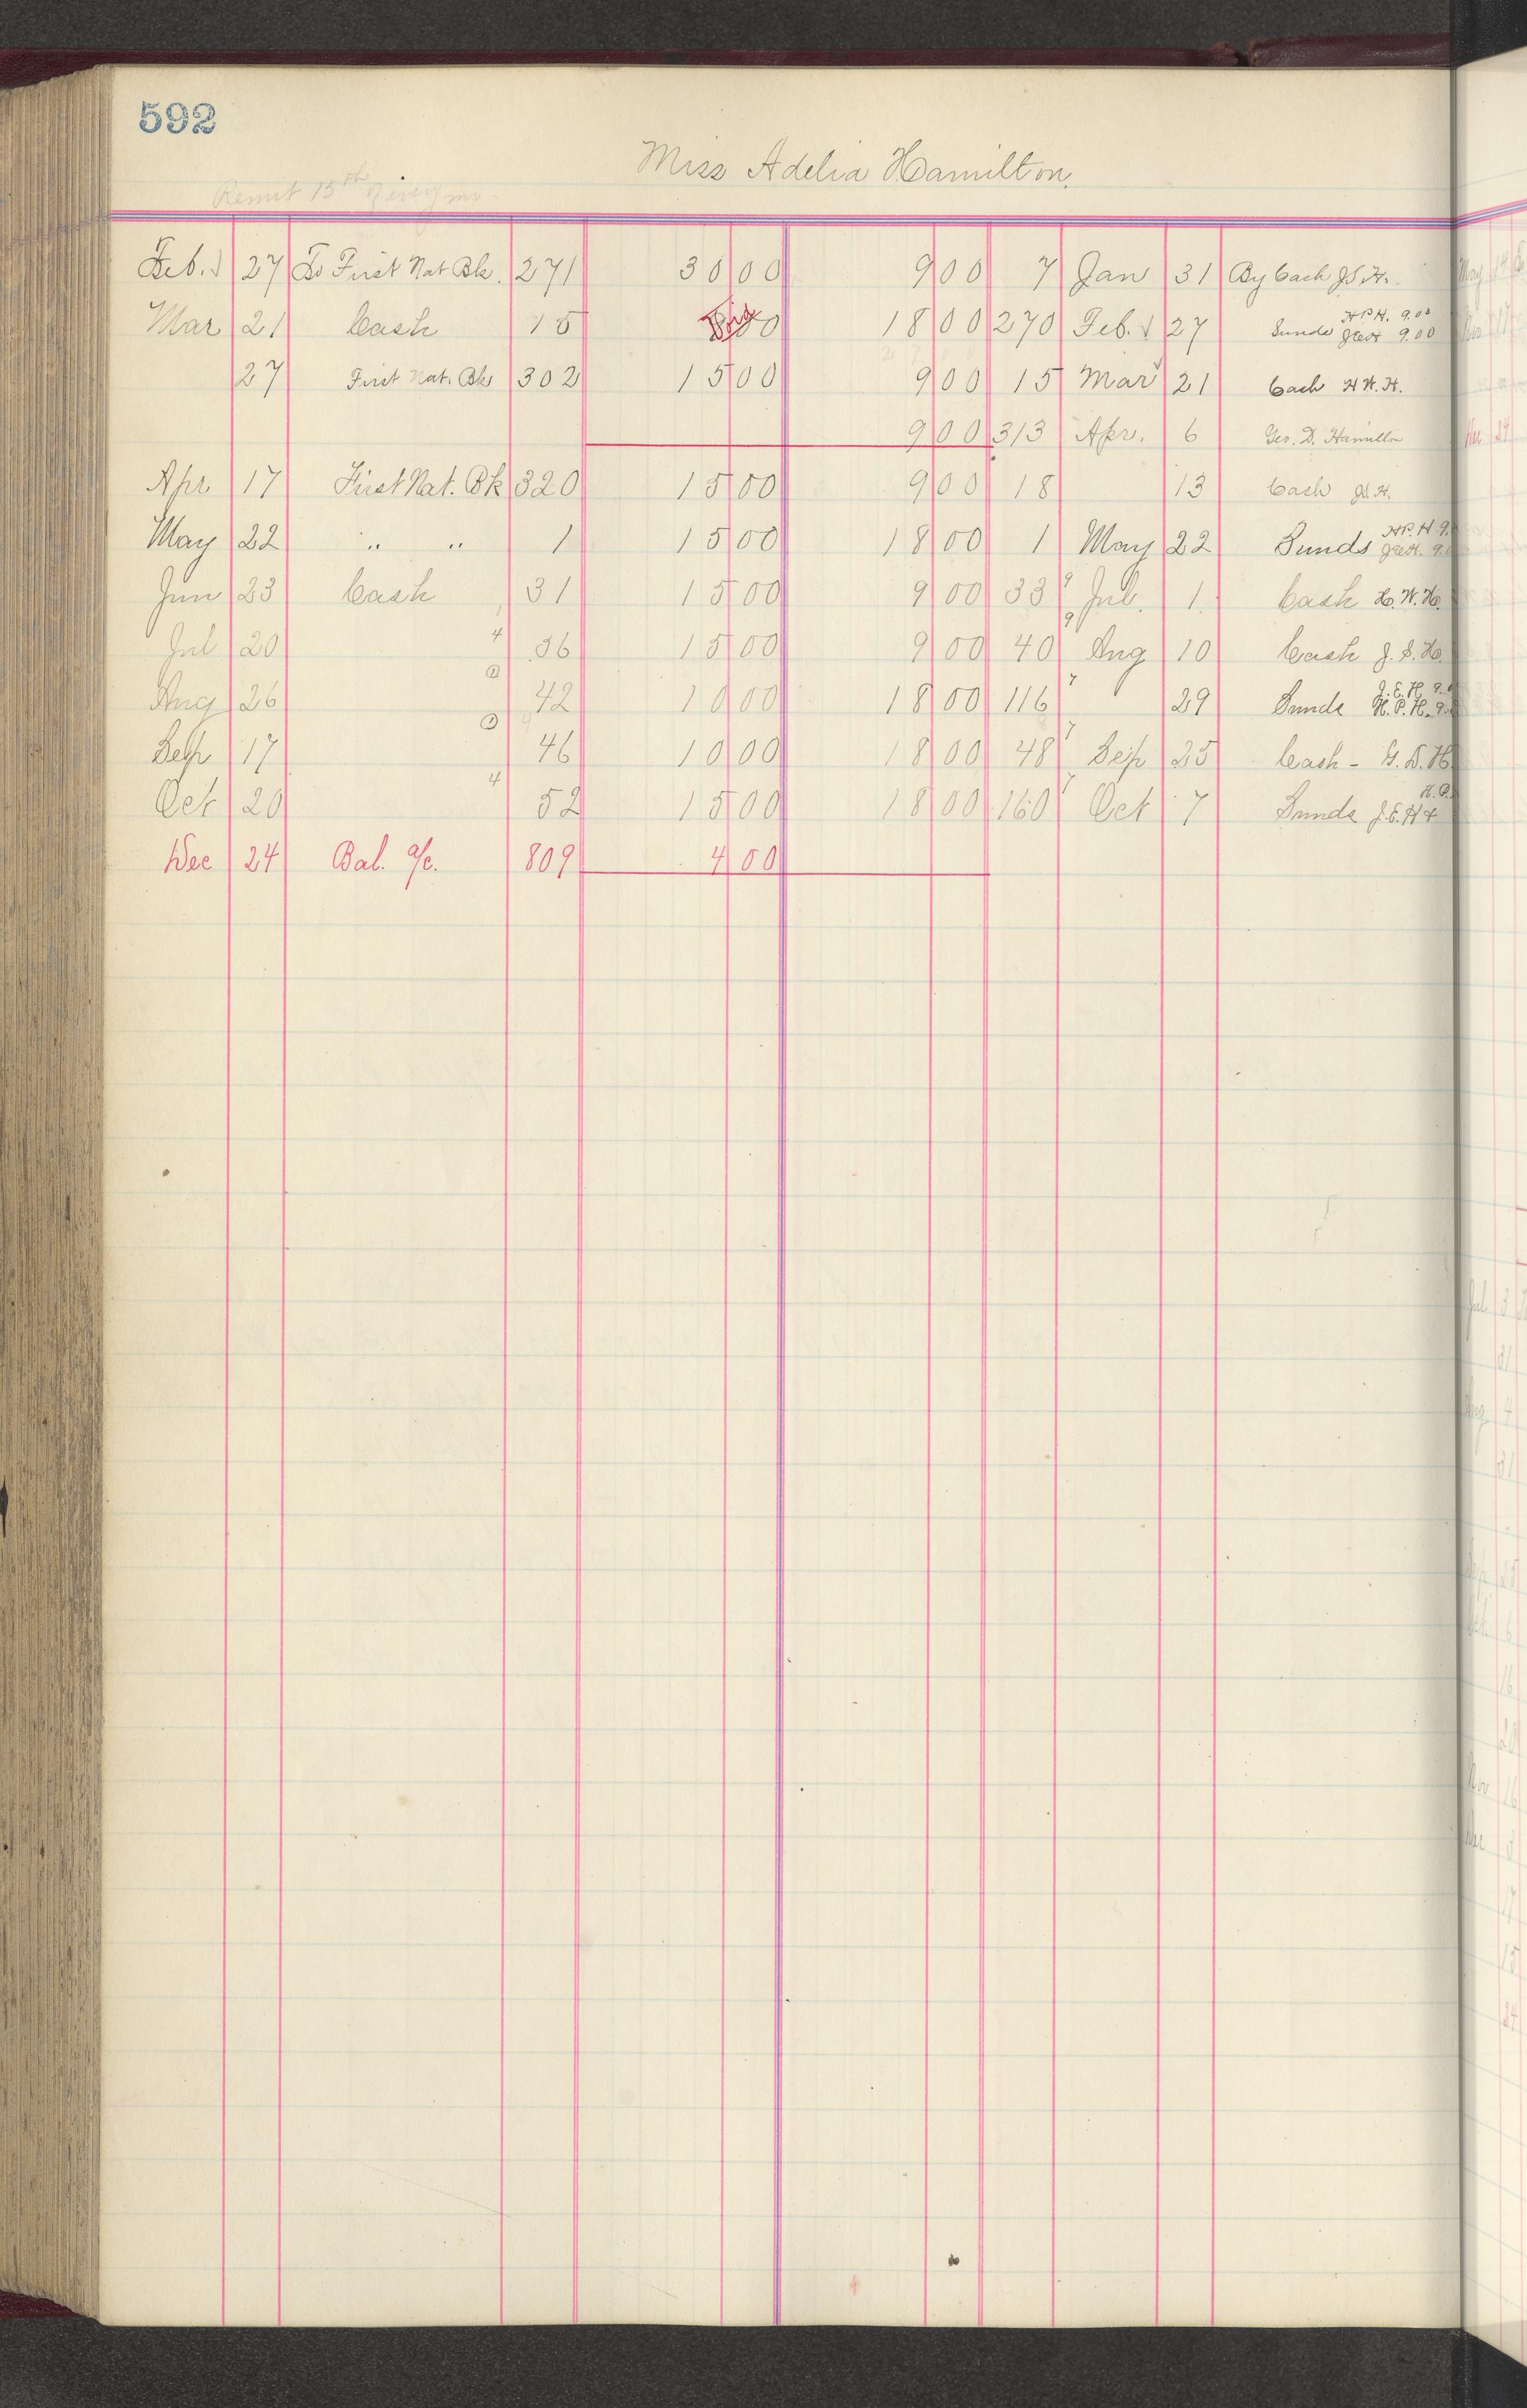 592
Miss Adelia Hamilton.
Remit 15th of every mo.
Feb. 27 To First Nat Bk. 271 30 00 9 00 7 Jan 31 By Cash J.S.H.
H P H. 9.00
Mar 21 Cash 15 18 00 270 Feb. 27 Sunds 9.00
27 First Nat. Bk 302 15 00 9 00 15 Mar 21 Cash H.W.H.
9 00 313 Apr. 6 Geo. D. Hamilton
Apr 17 First Nat. Bk 320 15 00 9 00 18 13 Cash
H.P.H 9.
May 22 " " 1 15 00 18 00 1 May 22 Sunds
Jun 23 Cash 31 15 00 9 00 33 Jul. 1 Cash H.W.H.
Jul 20 4 36 15 00 9 00 40 9 Aug 10 Cash J.S.H.
J.E.H 9.
Aug 26 42 10 00 18 00 116 7 29 Sunds H.P.H. 9.
Sep 17 46 10 00 18 00 48 7 Sep 25 Cash - G.D.H
H.P.
Oct 20 4 52 15 00 18 00 160 7 Oct 7 Sunds J.E.H +
Dec 24 Bal. a/c. 809 4 00